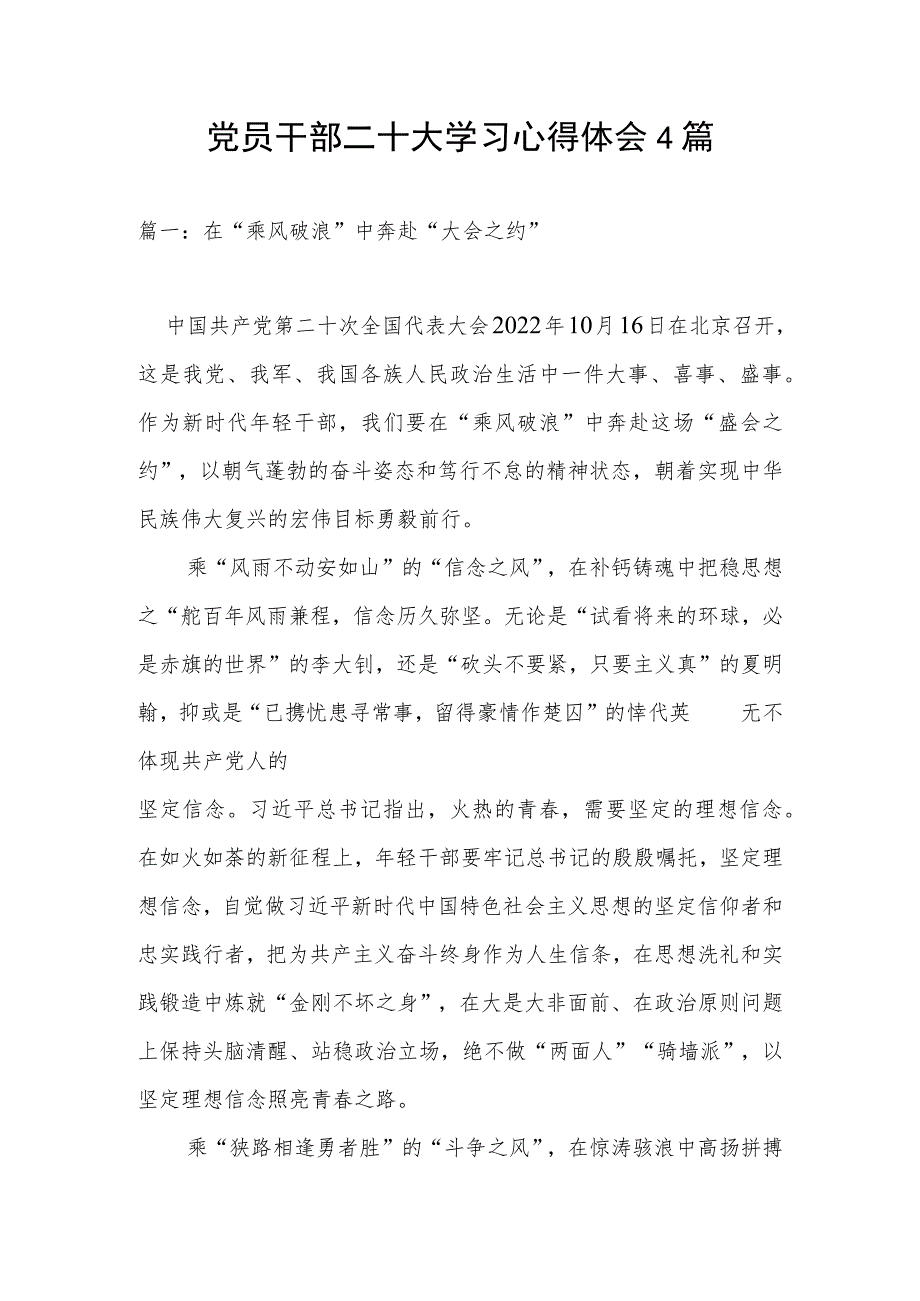 党员干部二十大学习心得体会4篇
篇一：在“乘风破浪”中奔赴“大会之约”
中国共产党第二十次全国代表大会2022年10月16日在北京召开，
这是我党、我军、我国各族人民政治生活中一件大事、喜事、盛事。
作为新时代年轻干部，我们要在“乘风破浪”中奔赴这场“盛会之
约”，以朝气蓬勃的奋斗姿态和笃行不怠的精神状态，朝着实现中华
民族伟大复兴的宏伟目标勇毅前行。
乘“风雨不动安如山”的“信念之风”，在补钙铸魂中把稳思想
之“舵百年风雨兼程，信念历久弥坚。无论是“试看将来的环球，必
是赤旗的世界”的李大钊，还是“砍头不要紧，只要主义真”的夏明
翰，抑或是“已携忧患寻常事，留得豪情作楚囚”的悻代英 无不
体现共产党人的
坚定信念。习近平总书记指出，火热的青春，需要坚定的理想信念。
在如火如荼的新征程上，年轻干部要牢记总书记的殷殷嘱托，坚定理
想信念，自觉做习近平新时代中国特色社会主义思想的坚定信仰者和
忠实践行者，把为共产主义奋斗终身作为人生信条，在思想洗礼和实
践锻造中炼就“金刚不坏之身”，在大是大非面前、在政治原则问题
上保持头脑清醒、站稳政治立场，绝不做“两面人”“骑墙派”，以
坚定理想信念照亮青春之路。
乘“狭路相逢勇者胜”的“斗争之风”，在惊涛骇浪中高扬拼搏